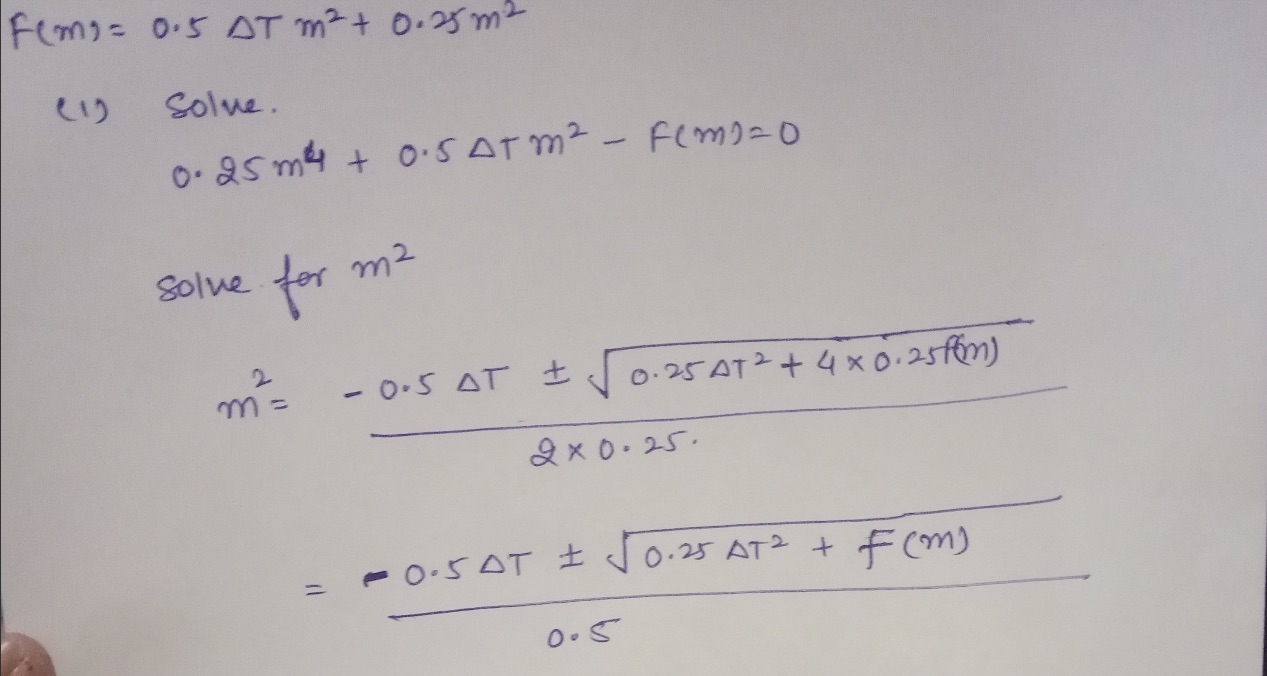 F(m) = 0.5 ΔT m² + 0.25 m²
(1) Solve.
0.25 m⁴ + 0.5 ΔT m² - F(m) = 0
Solve for m²
m² = - 0.5 ΔT ± √0.25 ΔT² + 4 × 0.25 f(m)
2 × 0.25.
= - 0.5 ΔT ± √0.25 ΔT² + F(m)
0.5